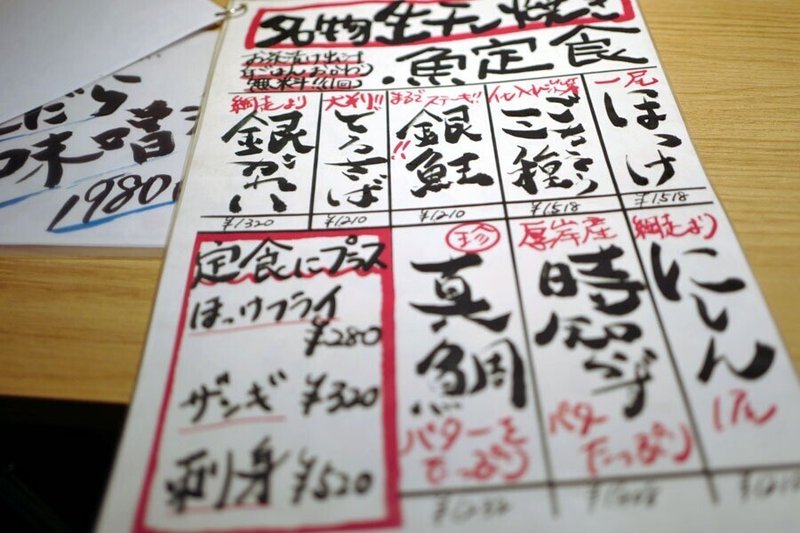 名物生干し焼き
魚定食
お茶漬け出汁
ごはんおかわり
無料!!(1回)
一尾
ほっけ
¥1518
三種
¥1518
まるでステーキ!!
銀鮭!!
¥1210
大判!!
とろさば
¥1210
網走より
銀がれい
¥1320
網走より
にしん
厚岸産
時知らず
バター
たっぷり
珍
真鯛
バターを
たっぷり
定食にプラス
ほっけフライ
¥280
ザンギ ¥320
刺身 ¥520
味噌
1980